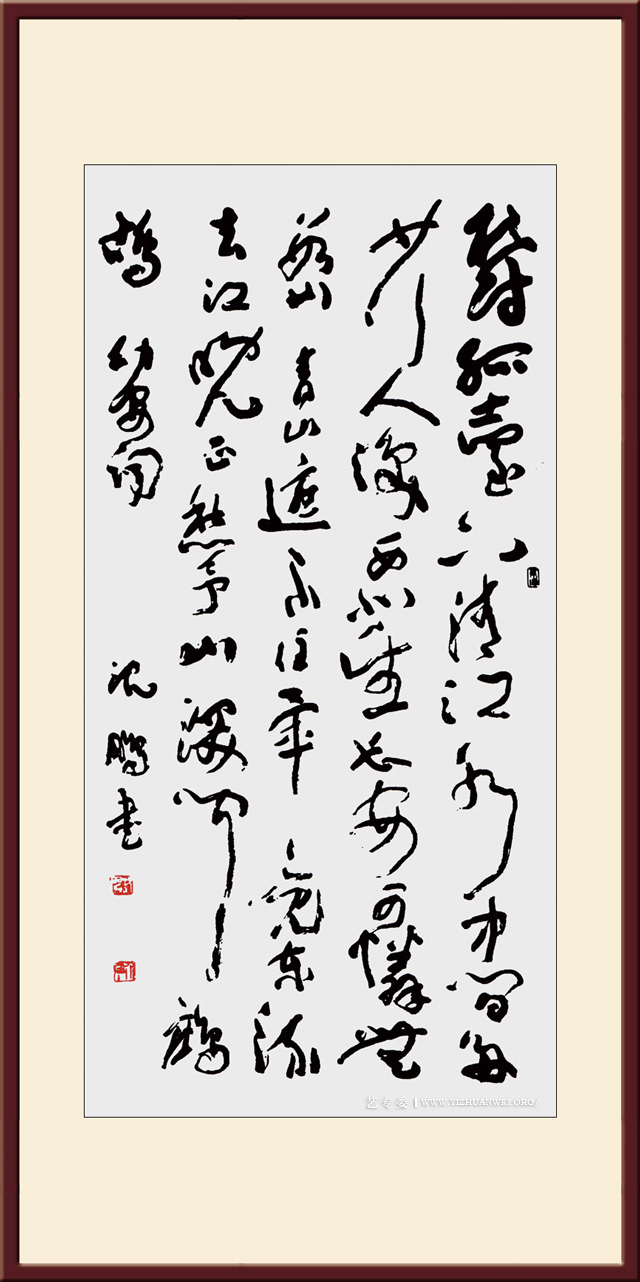 鬱孤臺下清江水中間多
少行人淚西北望長安可憐無
數山青山遮不住畢竟東流
去江晚正愁予山深聞鷓
鴣 幼安詞 沈鵬書
艺专委 | WWW.YIZHUANWEI.ORG/